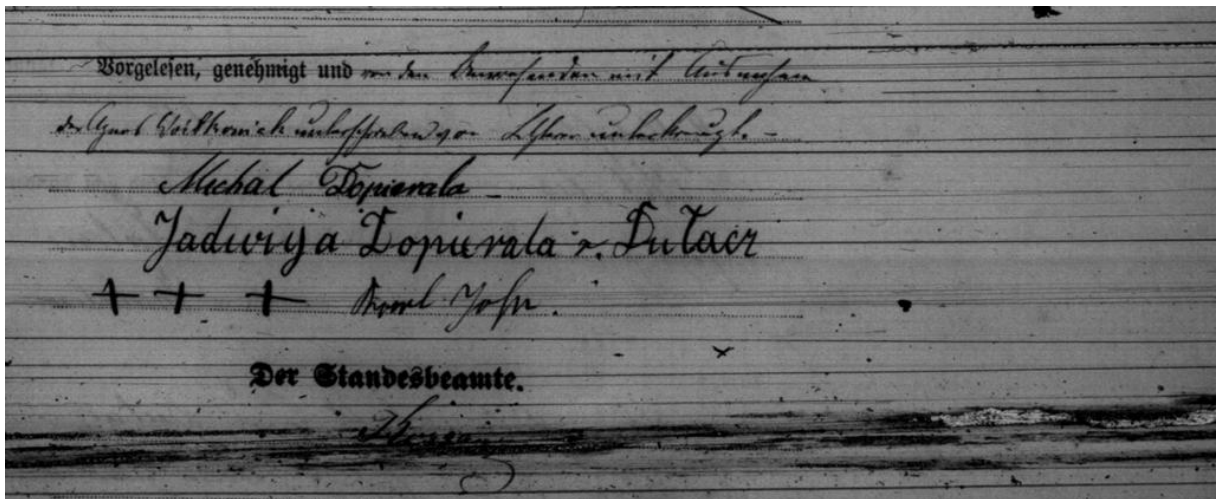 Vorgelesen, genehmigt und von den Anwesenden mit Ausnahme
der Agnes Woitkowiak unterschrieben, von Letzterer unterkreuzt. –
Michal Dopierala
Jadwiga Dopierala z. Dułacz
+ + + Karl John.
Der Standesbeamte.